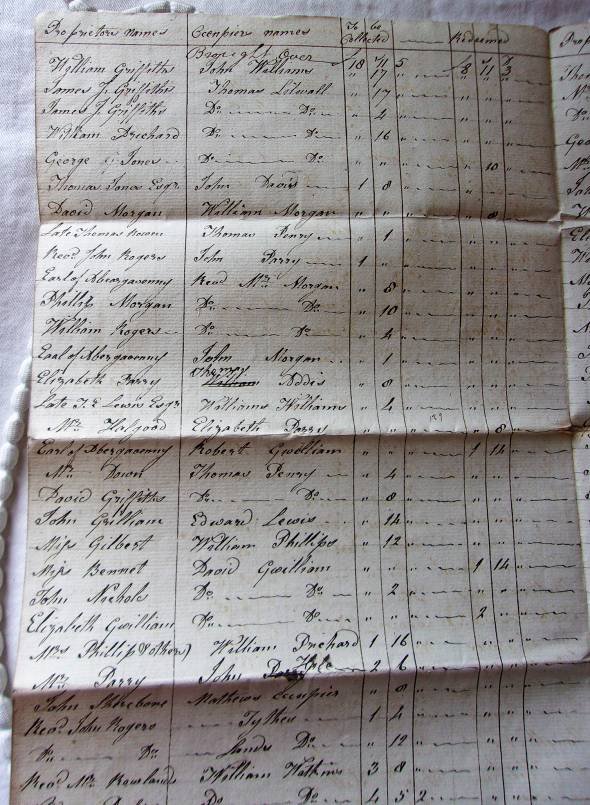 Proprietors names Occupiers names To be Collected Redeemed
Brought Over 18 11 5 8 11 3
William Griffiths John Williams " 17
James J. Griffiths Thomas Lilwall " 17
James J. Griffiths Do. Do. " 4
William Prichard Do. Do. " 16
George Jones Do. Do. " " 10
Thomas Jones Esqr. John Davis 1 8
David Morgan William Morgan " " 8
Late Thomas Bowen Thomas Penry " 1
Revd. John Rogers John Parry 1 "
Earl of Abergavenny Revd. Mr. Morgan " 8
Phillip Morgan Do. Do. " 10
William Rogers Do. Do. " 4
Earl of Abergavenny John Morgan " 1
Elizabeth Parry Addis " 8
Late T. Lewis Esqr. Williams Williams " 4
Mr. Elizabeth Parry " " 8
Earl of Abergavenny Robert Gwilliam " " 1 14
Mr. Thomas Penry " 4
David Griffiths Do. Do. " 8
John Gwilliam Edward Lewis " 14
Miss Gilbert William Phillips " 12
Miss Bennet David Gwilliam " " 1 14
John Nichols Do. Do. " 2
Elizabeth Gwilliam Do. Do. " " 2
Mrs. Phillips & others William Prichard 1 16
Mr. Parry John 2 6
John Mathews Occupier " 8
Revd. John Rogers Tythes 1 4
Do. Do. Lands Do. " 12
Revd. Mr. Rowlands William Watkins 3 8
Do. Do. 4 5 2